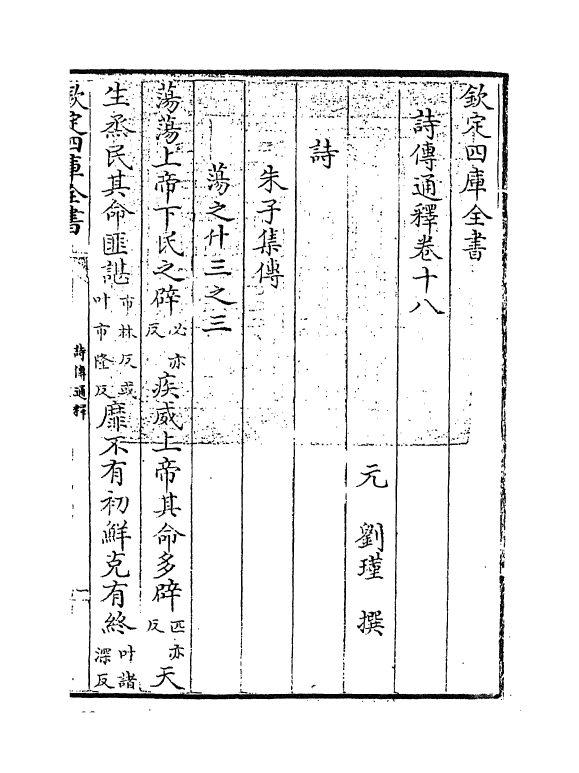 欽定四庫全書
詩傳通釋卷十八
元　劉瑾　撰
詩
朱子集傳
蕩之什三之三
蕩蕩上帝下民之辟必亦反疾威上帝其命多辟匹亦反天
生烝民其命匪諶市林反或叶市隆反靡不有初鮮克有終叶諸深反
欽定四庫全書
詩傳通釋
一